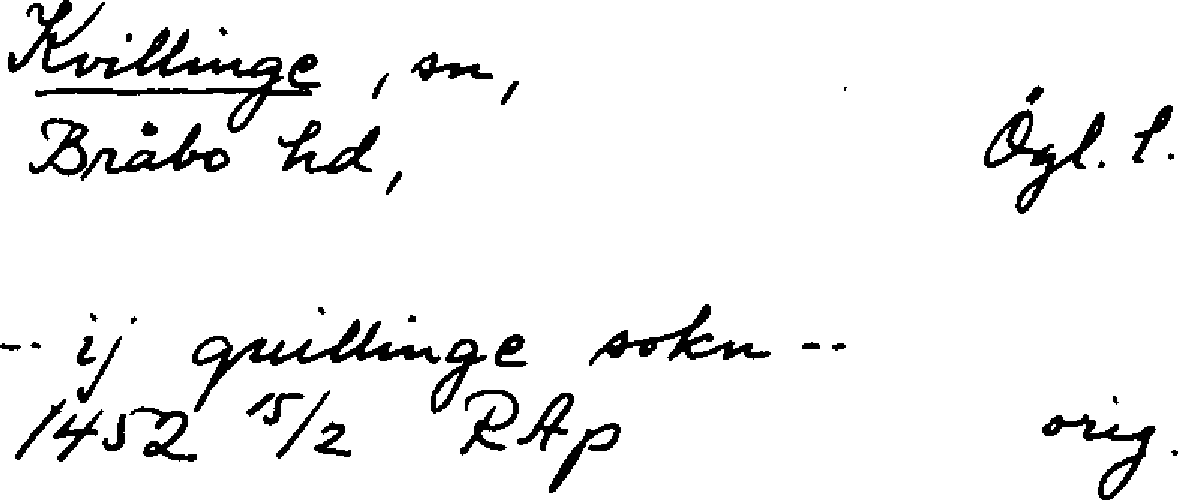 Kvillinge, sn,
Bråbo hd, Ögl. l.
-- ij quillinge sokn --
1452 15/2 RAp orig.